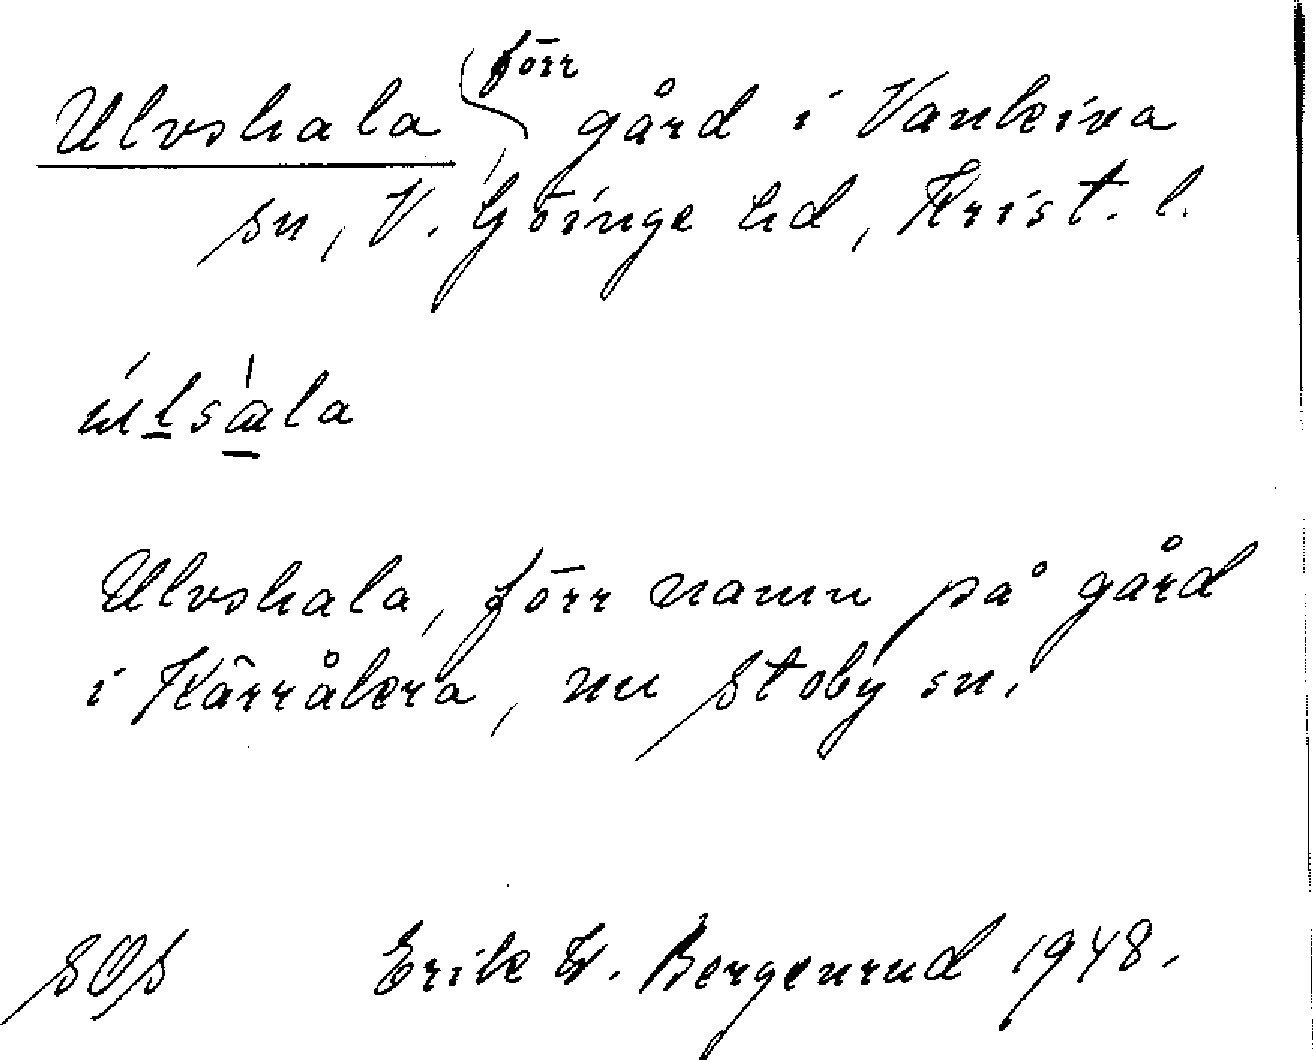 Ulvshala förr gård i Vankiva
sn, V. Göinge hd, Krist. l.
Ulvshala, förr namn på gård
i Kärråkra, nu Stoby sn.
SOS Erik W. Bergenrud 1948.